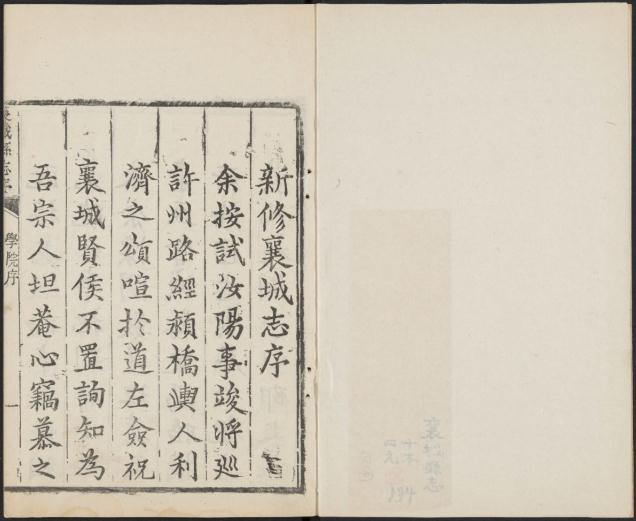 新修襄城志序
余按試汝陽事竣將廵
許州路經潁橋輿人利
濟之頌喧扵道左僉祝
襄城賢侯不置詢知為
吾宗人坦菴心竊慕之
襄城縣志序
學院序
一
襄城縣志
十本
四元
194